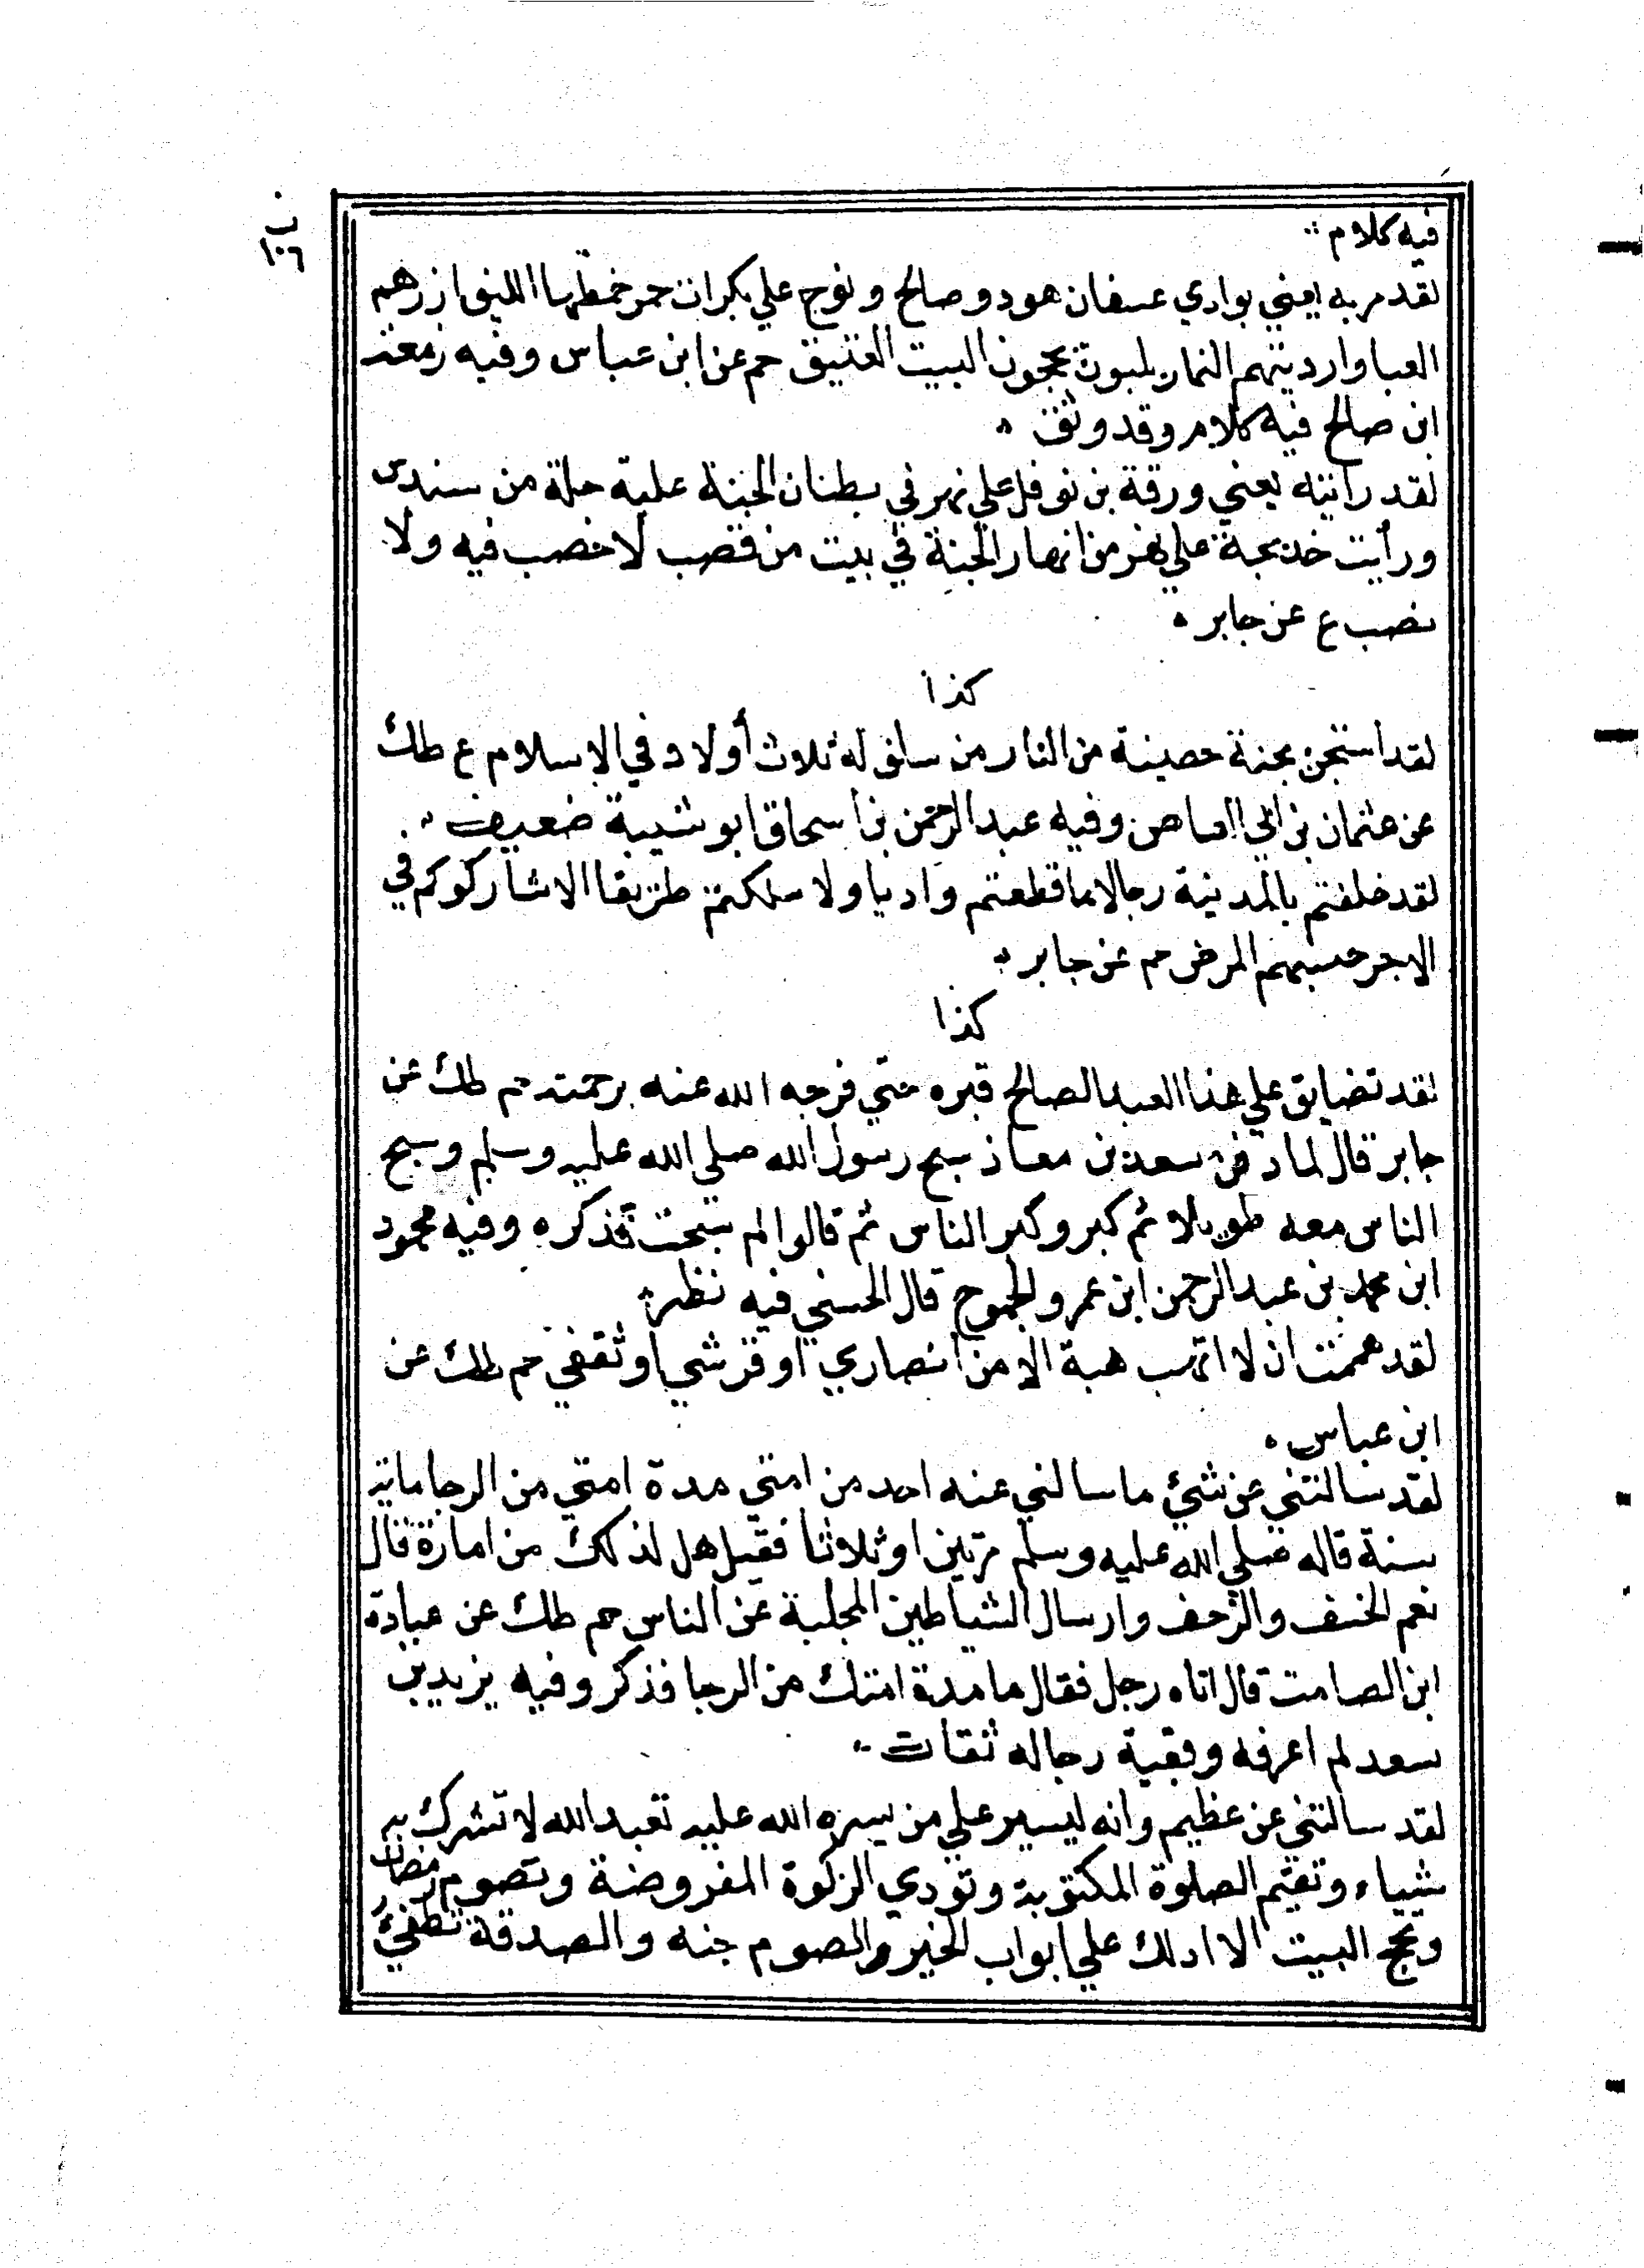 ب
١٠٦
فيه كلام
لقد مر به يعني بوادي عسفان هود و صالح و نوح علي بكرات حمر خطمها الليف ازرهم
العبا وارديتهم النمار يلبون يحجون البيت العتيق حم عن ابن عباس وفيه زمعة
ابن صالح فيه كلام وقد وثق
لقد رأيته يعني ورقة بن نوفل علي نهر في بطنان الجنة عليه حلة من سندس
ورأيت خديجة علي نهر من انهار الجنة في بيت من قصب لا خصب فيه ولا
نصب ع عن جابر
كذا
لقد استجن بجنة حصينة من النار من سلف له ثلاث أولاد في الاسلام ع طك
عن عثمان بن ابي العاص وفيه عبد الرحمن بن اسحاق ابو شيبة ضعيف
لقد خلفتم بالمدينة رجالا ما قطعتم واديا ولا سلكتم طريقا الا شاركوكم في
الاجر حبسهم المرض حم عن جابر
كذا
لقد تضايق علي هذا العبد الصالح قبره حتي فرجه الله عنه برحمته حم طك عن
جابر قال لما دفن سعد بن معاذ سبح رسول الله صلي الله عليه وسلم وسبح
الناس معه طويلا ثم كبر وكبر الناس ثم قالوا لم سبحت فذكره وفيه محمود
ابن محمد بن عبد الرحمن ابن عمرو الجموح قال الحسني فيه نظر
لقد هممت ان لا اتهب هبة الا من انصاري او قرشي او ثقفي حم طك عن
ابن عباس
لقد سالتني عن شئ ما سالني عنه احد من امتي مدة امتي من الرجا ماية
سنة قاله صلي الله عليه وسلم مرتين او ثلاثا فقيل هل لذلك من امارة قال
نعم الخسف والرجف وارسال الشياطين المجلبة عن الناس حم طك عن عبادة
ابن الصامت قال اتاه رجل فقال ما مدة امتك من الرجا فذكر وفيه يزيد بن
سعد لم اعرفه وبقية رجاله ثقات
لقد سالتني عن عظيم وانه ليسير علي من يسره الله عليه تعبد الله لا تشرك به
شيياء وتقيم الصلوة المكتوبة وتودي الزكوة المفروضة وتصوم رمضان
وتحج البيت الا ادلك علي ابواب الخير والصوم جنه والصدقة تطفئ